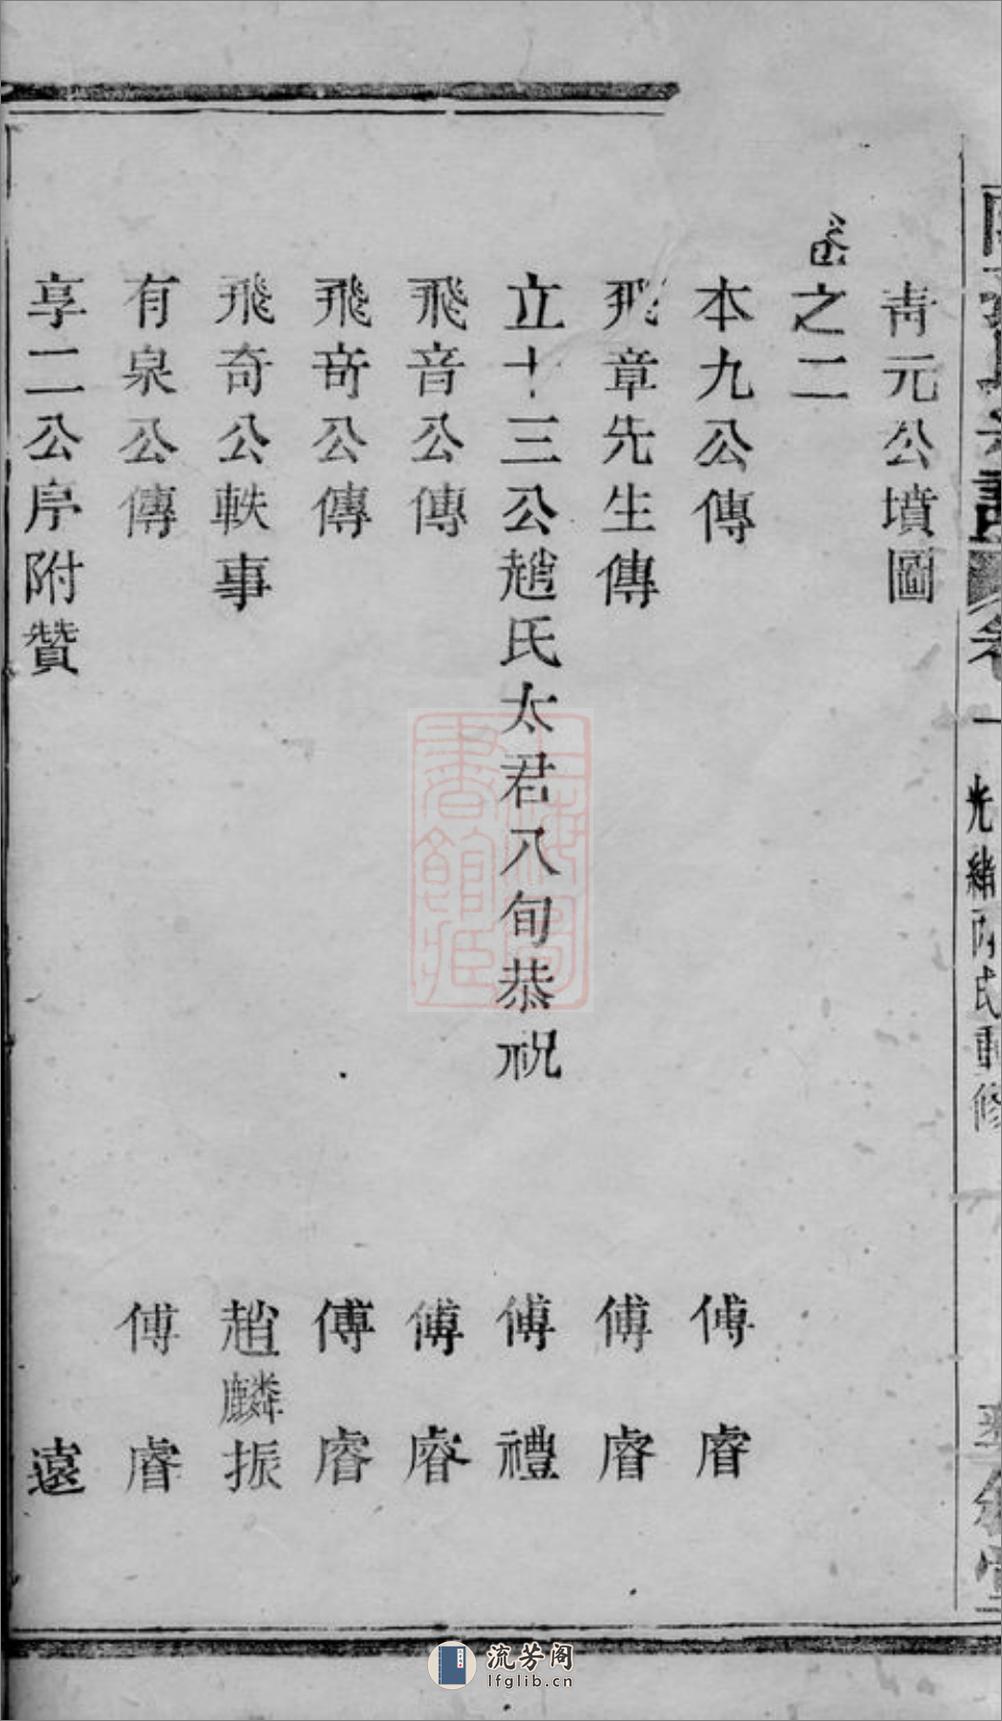 青元公墳圖
卷之二
本九公傳 傅睿
飛章先生傳 傅睿
立十三公趙氏太君八旬恭祝 傅禮
飛音公傳 傅睿
飛奇公傳 傅睿
飛奇公軼事 趙麟振
有泉公傳 傅睿
享二公序附贊 遠
卷一
光緒丙戌重修
上海圖書館藏
流芳阁
lfglib.cn